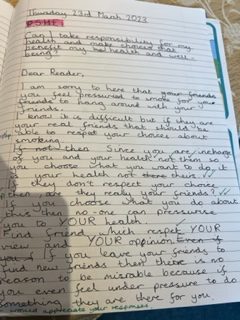 Thursday 23rd March 2023
PSHE
Can I take responsibility for my
health and make choices that
benefit my health and well-
being?
Dear Reader,
I am sorry to here that your friends
you feel pressured to smoke for your
friends to hang around with your
friends.
I know is is difficult but if they are
your real friends that should be
able to respet your choces about
smoking.
If not then Since you are incharge
of you and your health not them so
you choose what you want to do, it
is your health not there theirs if
they don't respect your choice
then are they realy your friends!
If you choose what you do about
this then no-one can pressurise
you to YOUR health.
Find friend which respet YOUR
view and YOUR oppinion. Even if
you f If you leave your friends to
find new friends then there is no
reason to be misrable because if
you even feel under pressure to do
something they are there for you.
would appreciate your responses